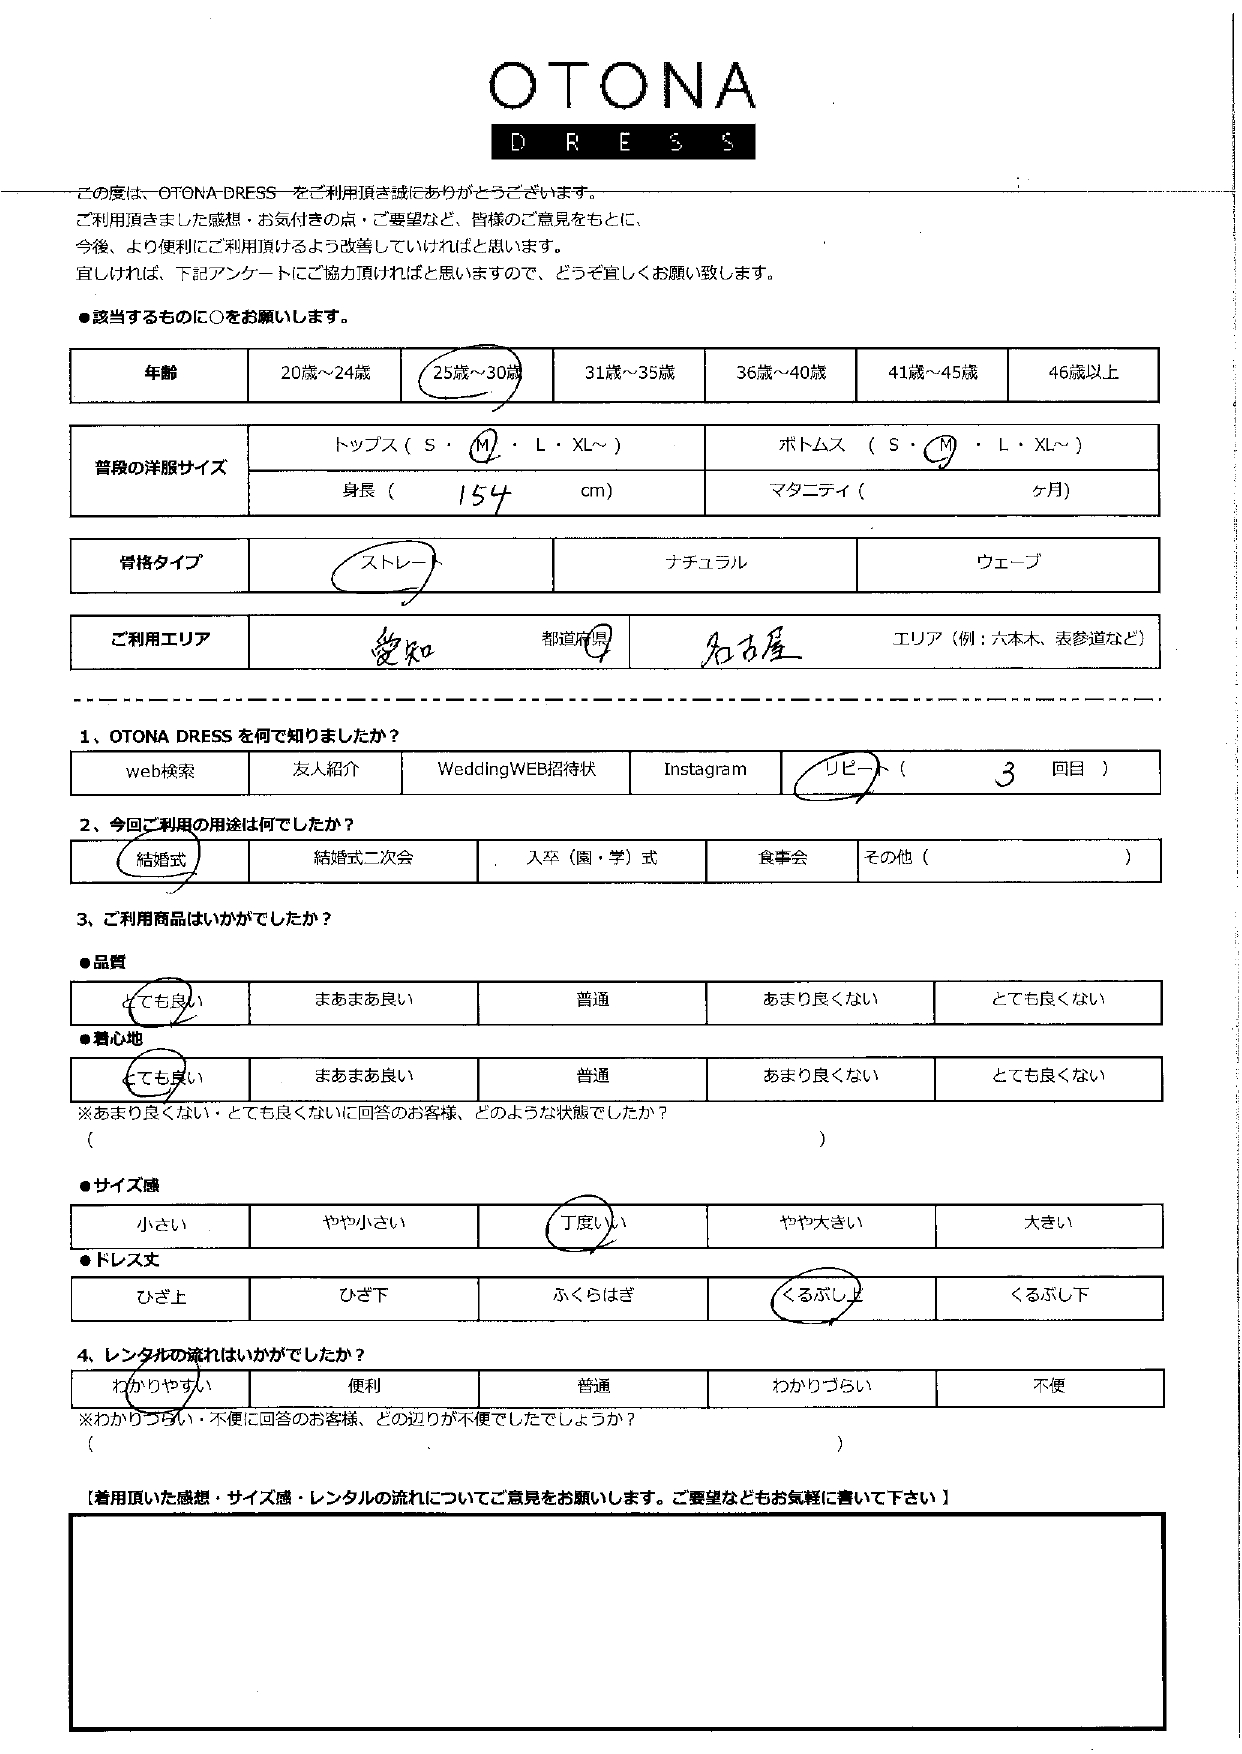 OTONA
DRESS
この度は、OTONA DRESS をご利用頂き誠にありがとうございます。
ご利用頂きました感想・お気付きの点・ご要望など、皆様のご意見をもとに、
今後、より便利にご利用頂けるよう改善していければと思います。
宜しければ、下記アンケートにご協力頂ければと思いますので、どうぞ宜しくお願い致します。
●該当するものに○をお願いします。
年齢 20歳～24歳 25歳～30歳 31歳～35歳 36歳～40歳 41歳～45歳 46歳以上
普段の洋服サイズ トップス ( S ・ M ・ L ・ XL～ ) ボトムス ( S ・ M ・ L ・ XL～ )
身長 ( 154 cm) マタニティ ( ヶ月)
骨格タイプ ストレート ナチュラル ウェーブ
ご利用エリア 愛知 都道府県 名古屋 エリア（例：六本木、表参道など）
1、OTONA DRESS を何で知りましたか？
web検索 友人紹介 WeddingWEB招待状 Instagram リピート ( 3 回目 )
2、今回ご利用の用途は何でしたか？
結婚式 結婚式二次会 入卒（園・学）式 食事会 その他 ( )
3、ご利用商品はいかがでしたか？
●品質
とても良い まあまあ良い 普通 あまり良くない とても良くない
●着心地
とても良い まあまあ良い 普通 あまり良くない とても良くない
※あまり良くない・とても良くないに回答のお客様、どのような状態でしたか？
( )
●サイズ感
小さい やや小さい 丁度いい やや大きい 大きい
●ドレス丈
ひざ上 ひざ下 ふくらはぎ くるぶし上 くるぶし下
4、レンタルの流れはいかがでしたか？
わかりやすい 便利 普通 わかりづらい 不便
※わかりづらい・不便に回答のお客様、どの辺りが不便でしたでしょうか？
( )
【着用頂いた感想・サイズ感・レンタルの流れについてご意見をお願いします。ご要望などもお気軽に書いて下さい 】